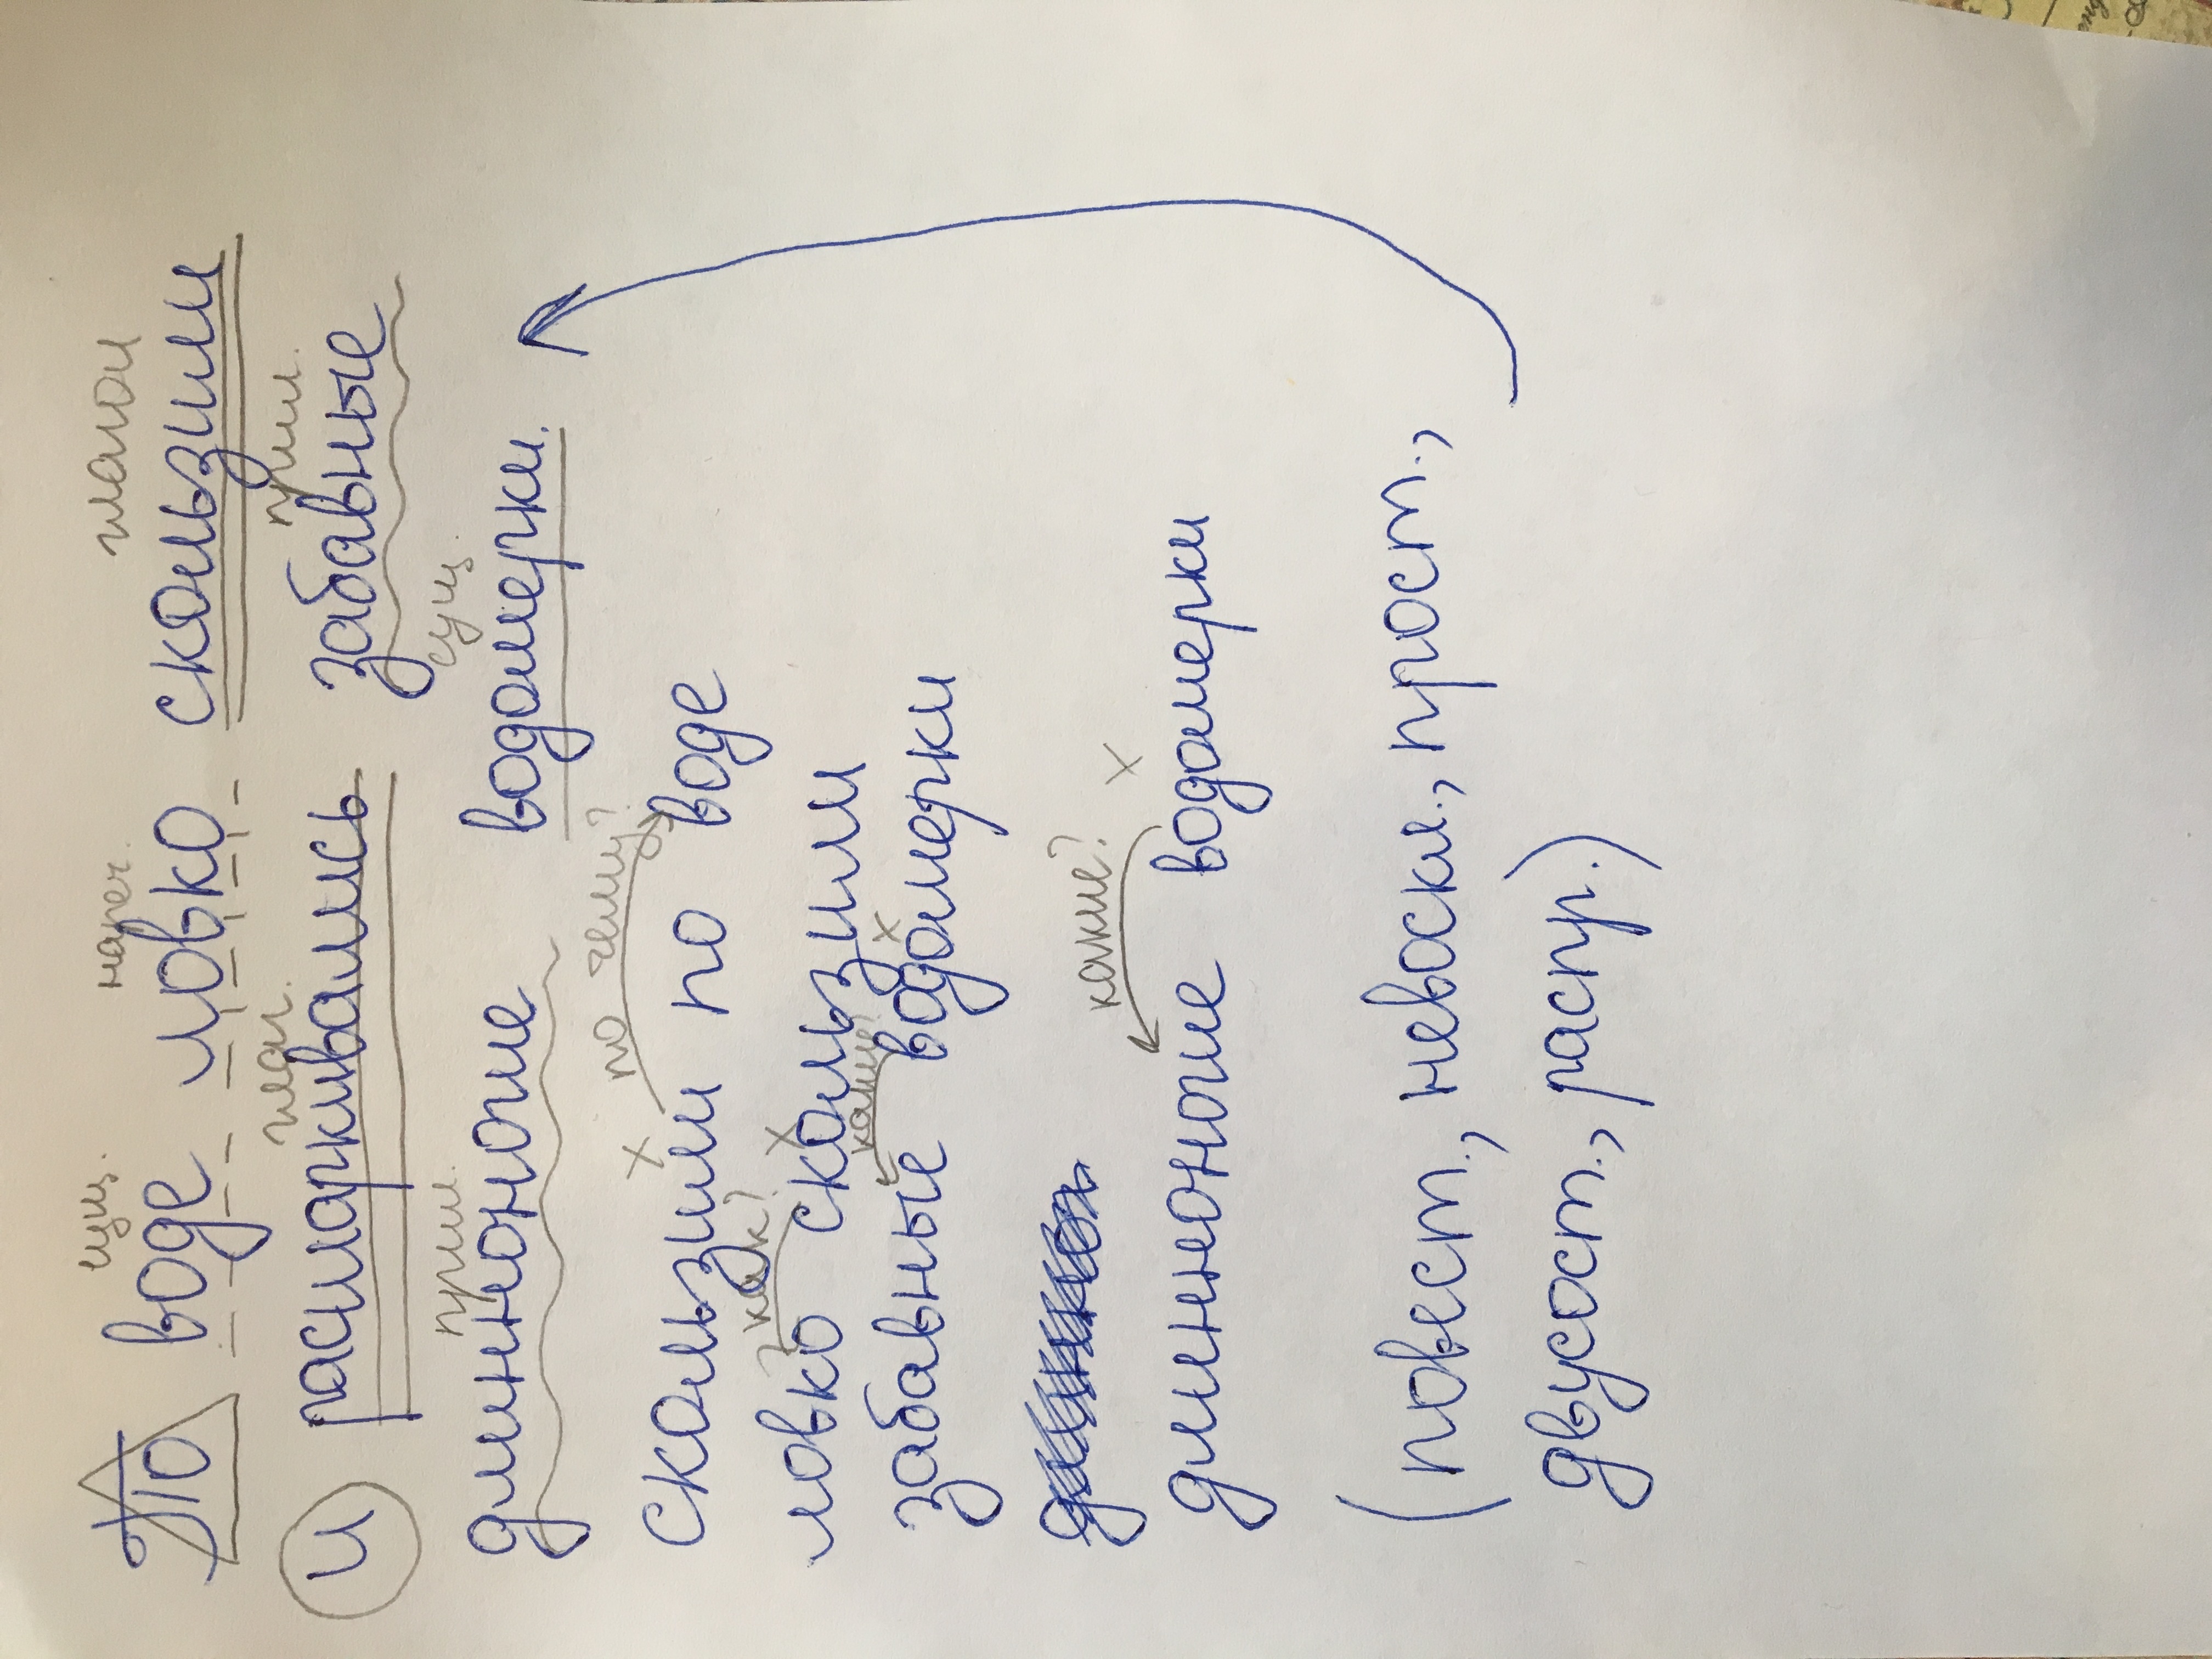 сущ. нареч. глагол
По воде ловко скользили
глаг. прил.
и раскаркивались забавные
прил. сущ.
длинноногие водомерки.
по чему?
х
скользили по воде
как? х
ловко скользили
какие? х
забавные водомерки
какие? х
длинноногие водомерки
(повест., невоскл., прост.,
двусост., распр.)